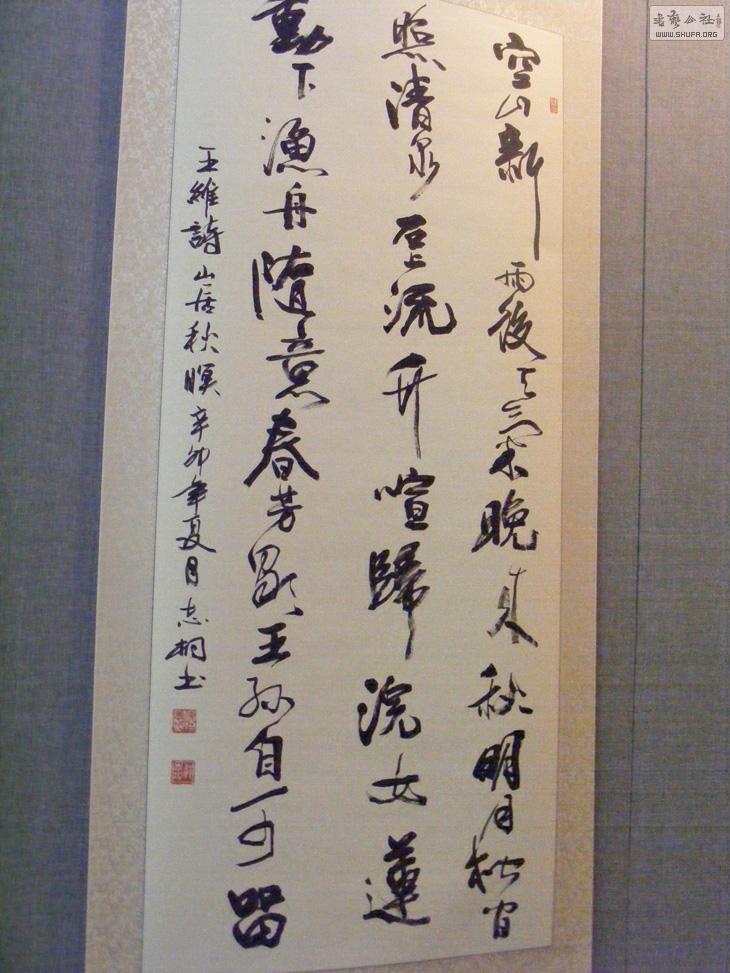 空山新雨後天氣晚来秋明月松间
照清泉石上流竹喧歸浣女蓮
動下漁舟随意春芳歇王孫自可留
王維詩山居秋暝辛卯年夏月志桐书
書藝公社
WWW.SHUFA.ORG